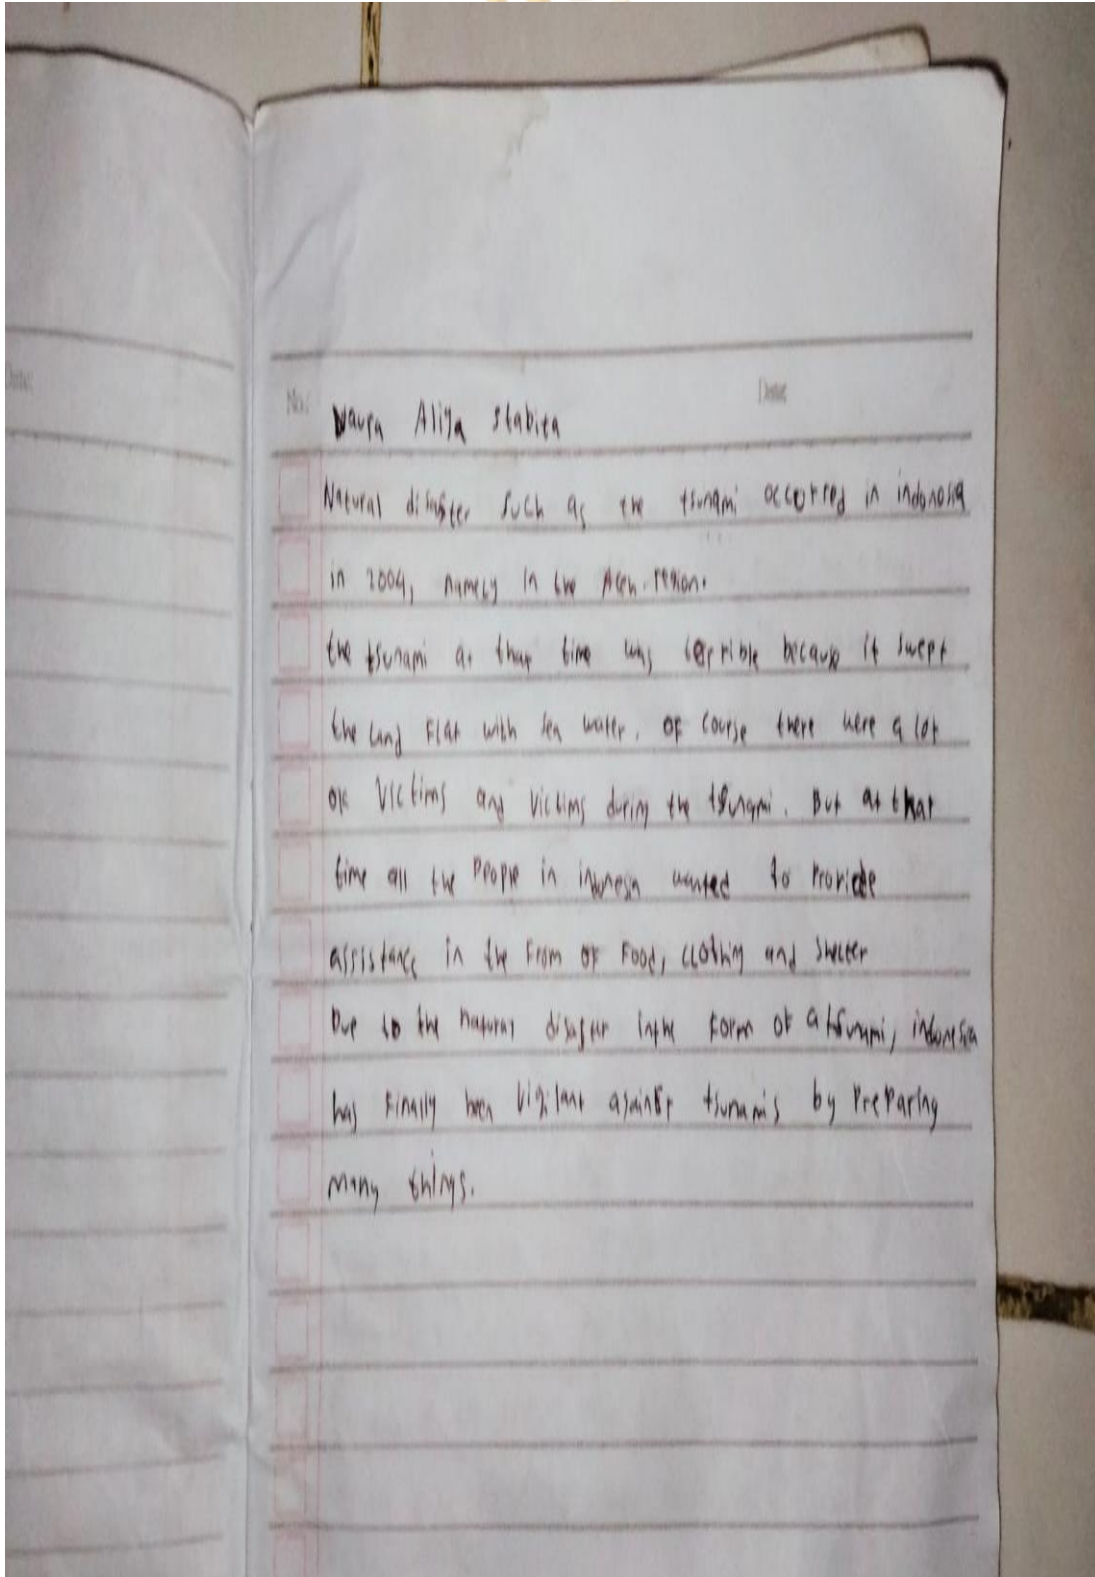 Date:
No.: Date:
Naura Aliya Stabita
Natural disaster such as the tsunami occurred in indonesia
in 2004, namely in the Aceh. region.
the tsunami at that time was terrible because it swept
the land Flat with sea water. OF course there were a lot
of Victims and Victims during the tsunami. But at that
time all the People in indonesia wanted to Provide
assistance in the From OF Food, clothing and Shelter
Due to the natural disaster inthe Form of a tsunami, indonesia
has Finally been Vigilant against tsunamis by PreParing
many things.